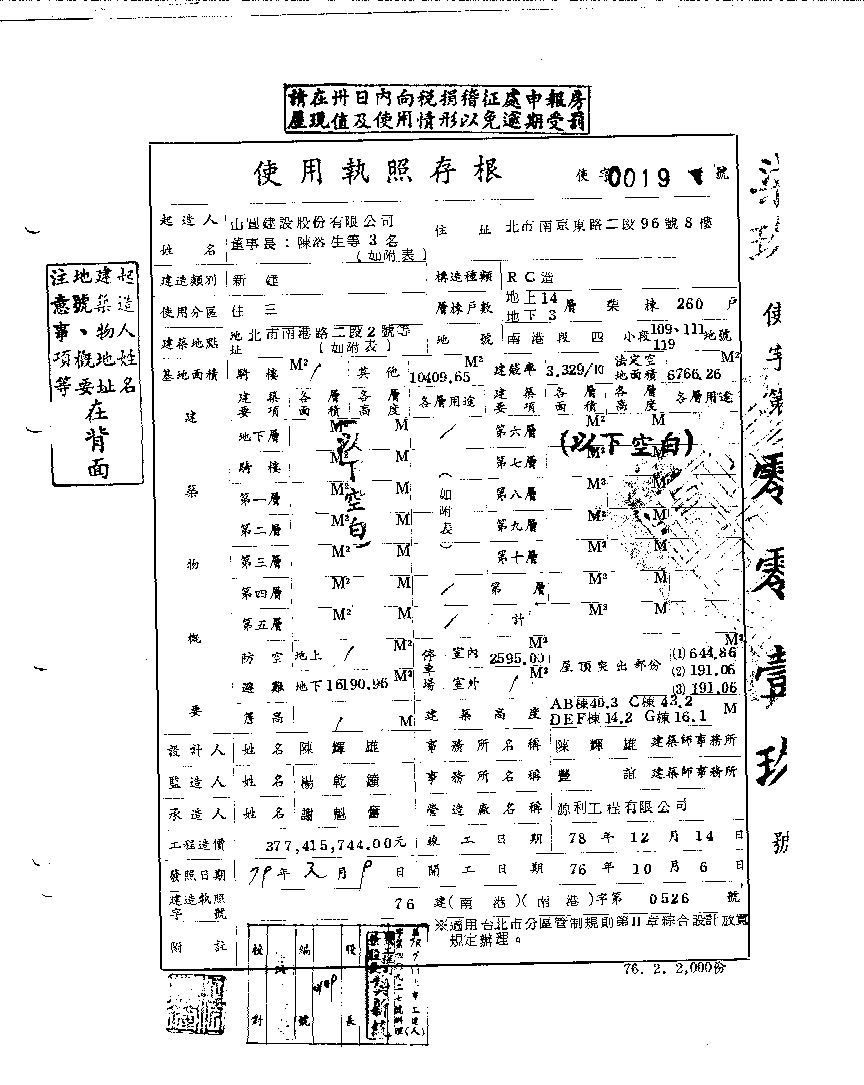 請在卅日內向稅捐稽征處申報房
屋現值及使用情形以免逾期受罰
使用執照存根
使字 0019 號
起造人
姓名
山圓建設股份有限公司
董事長：陳 生等3名
（如附表）
住址 北市南京東路二段96號8樓
建造類別 新建 構造種類 RC造
使用分區 住三 層棟戶數 地上14 地下3 層 柒棟 260戶
建築地點 地址 北市南港路二段2號等
（如附表）
地號 南港段四小段109、111、119地號
基地面積 騎樓 M² / 其他 10409.65 M² 建蔽率 3.329/10 法定空地面積 6766.26 M²
建築物概要
建築要項 各層面積 各層高度 各層用途 建築要項 各層面積 各層高度 各層用途
地下層 M² M / 第六層 M² M
騎樓 M² M 第七層 M² M
第一層 M² M 第八層 M² M
第二層 M² M 第九層 M² M
第三層 M² M 第十層 M² M
第四層 M² M / 第 層 M² M
第五層 M² M / 計 M²
（以下空白）
（如附表）
（以下空白）
防空避難 地上 / M²
地下 16190.96 M²
停車場 室內 2595.00 M²
室外 / M²
屋頂突出部份 (1) 644.86 M²
(2) 191.06
(3) 191.06
簷高 / M 建築高度 AB棟40.3 C棟43.2 M
DEF棟14.2 G棟16.1
設計人 姓名 陳輝雄 事務所名稱 陳輝雄 建築師事務所
監造人 姓名 楊乾 事務所名稱 豐誼 建築師事務所
承造人 姓名 謝魁 營造廠名稱 源利工程有限公司
工程造價 377,415,744.00元 竣工日期 78年12月14日
發照日期 79年2月9日 開工日期 76年10月6日
建造執照字號 76 建（南港）（南港）字第 0526 號
附註
※適用台北市分區管制規則第11章綜合設計放寬
規定辦理。
校對
編號
股長
76. 2. 2,000份
起造人姓名
建築物地址
地號、概要
注意事項等
在背面
玖 使字第零零壹玖號